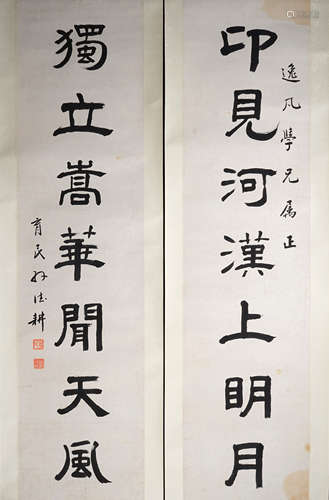 印見河漢上明月
逸凡學兄属正
獨立嵩華聞天風
育民孙德耕